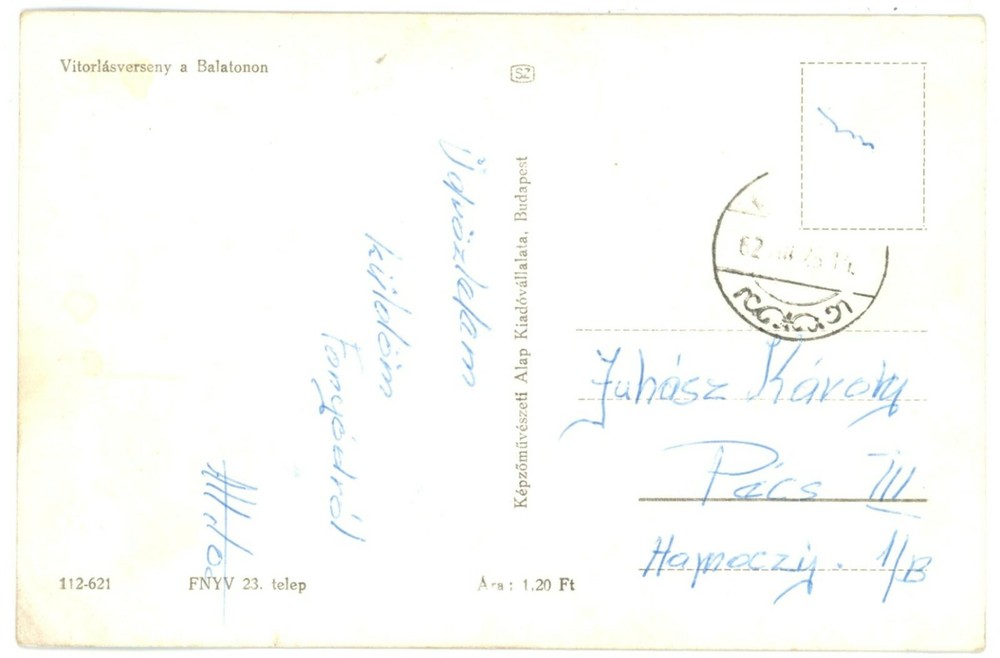 Vitorlásverseny a Balatonon
SZ
Üdvözletem
küldöm
Fonyódról
Képzőművészeti Alap Kiadóvállalata, Budapest
Juhász Károly
Pécs III
1/B
112-621
FNYV 23. telep
Ára: 1,20 Ft